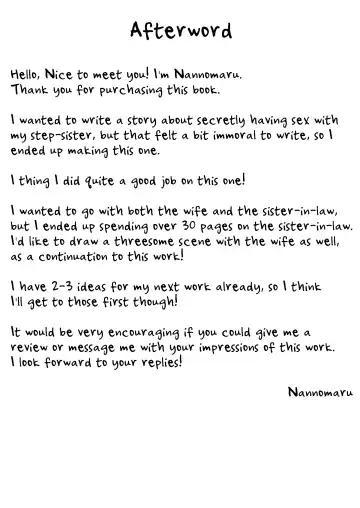 Afterword
Hello, Nice to meet you! I'm Nannomaru.
Thank you for purchasing this book.
I wanted to write a story about secretly having sex with
my step-sister, but that felt a bit immoral to write, so I
ended up making this one.
I thing I did quite a good job on this one!
I wanted to go with both the wife and the sister-in-law,
but I ended up spending over 30 pages on the sister-in-law.
I'd like to draw a threesome scene with the wife as well,
as a continuation to this work!
I have 2-3 ideas for my next work already, so I think
I'll get to those first though!
It would be very encouraging if you could give me a
review or message me with your impressions of this work.
I look forward to your replies!
Nannomaru